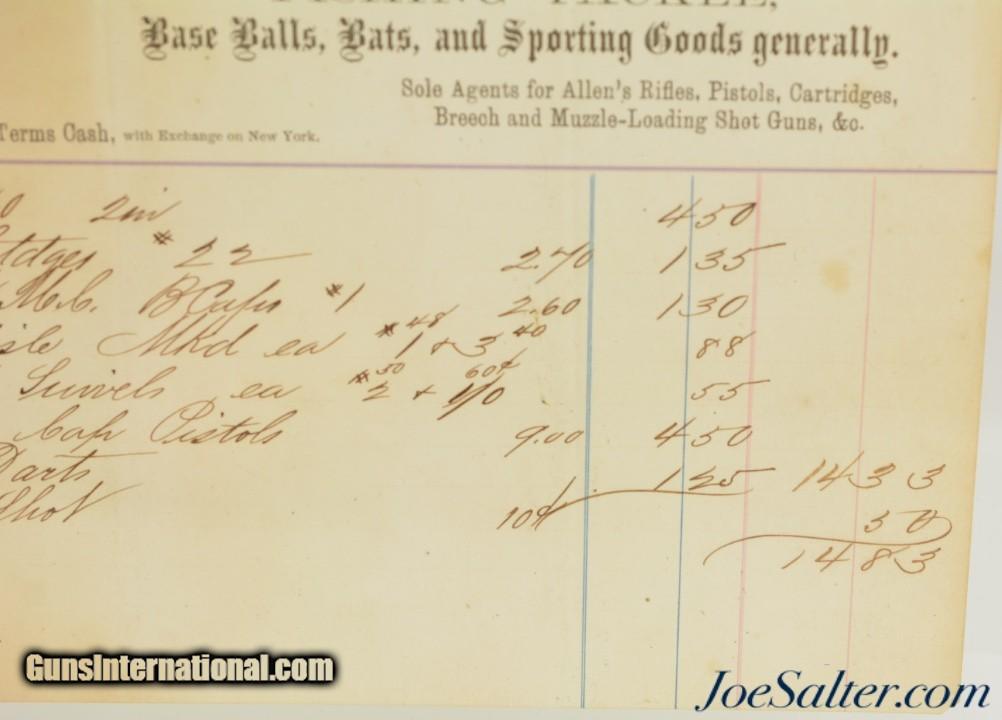 FISHING TACKLE,
Base Balls, Bats, and Sporting Goods generally.
Sole Agents for Allen's Rifles, Pistols, Cartridges,
Breech and Muzzle-Loading Shot Guns, &c.
Terms Cash, with Exchange on New York.
0 2in 450
tdges # 22 2.70 135
M.C. B Caps #1 2.60 130
Mkd ea #48 1 & 3 40 88
Swivels ea #50 2 + 1/0 60¢ 55
Cap Pistols 9.00 450
Darts 1 125 1433
Shot 10¢ 50
1483
GunsInternational.com
JoeSalter.com